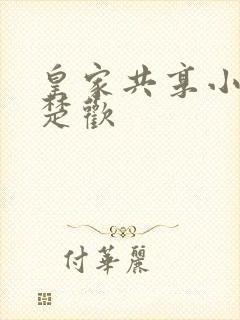 皇家共享小
楚歡
付華麗